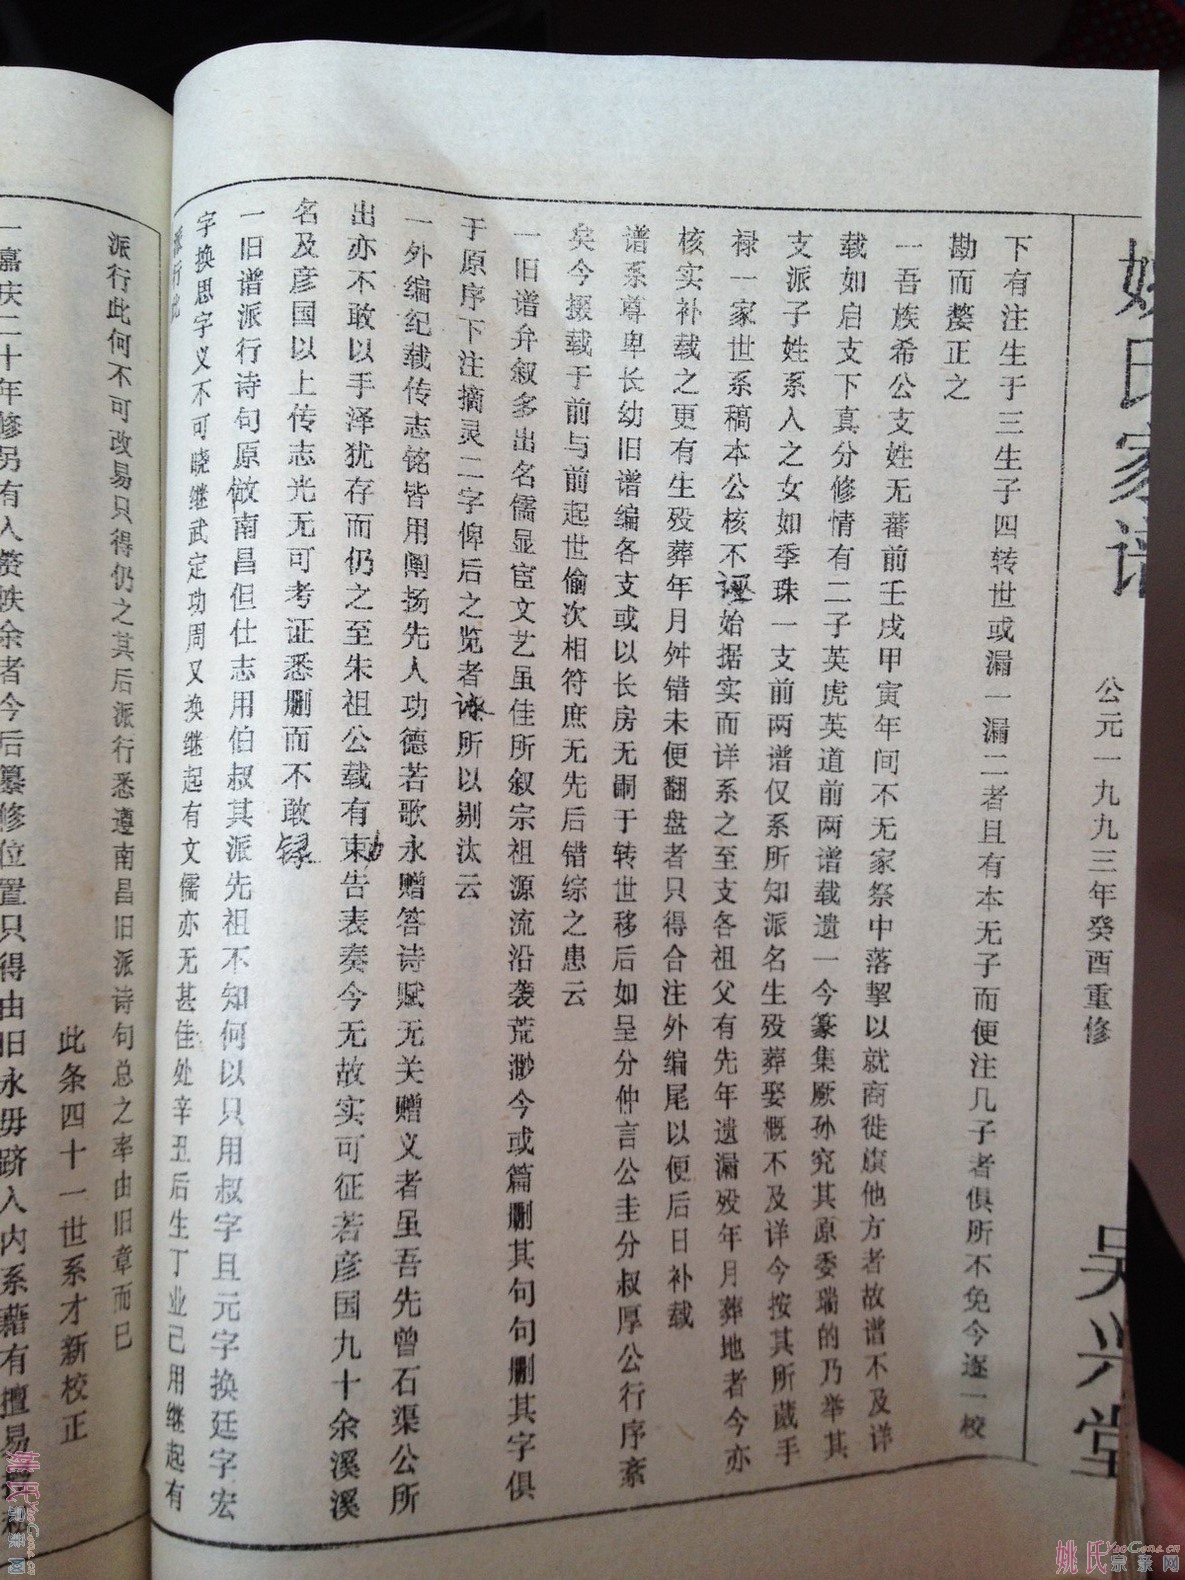 姚氏家谱 公元一九九三年癸酉重修 吴兴堂
下有注生于三生子四转世或漏一漏二者且有本无子而便注几子者俱所不免今逐一校
勘而釐正之
一吾族希公支姓无蕃前壬戌甲寅年间不无家祭中落挈以就商徙旗他方者故谱不及详
载如启支下真分修情有二子英虎英道前两谱载遗一今篆集厥孙究其原委瑞的乃举其
支派子姓系入之女如季珠一支前两谱仅系所知派名生殁葬娶概不及详今按其所藏手
禄一家世系稿本公核不诬始据实而详系之至支各祖父有先年遗漏殁年月葬地者今亦
核实补载之更有生殁葬年月舛错未便翻盘者只得合注外编尾以便后日补载
谱系尊卑长幼旧谱编各支或以长房无嗣于转世移后如呈分仲言公圭分叔厚公行序紊
矣今掇载于前与前起世偷次相符庶无先后错综之患云
一旧谱弁叙多出名儒显宦文艺虽佳所叙宗祖源流沿袭荒渺今或篇删其句句删其字俱
于原序下注摘灵二字俾后之览者谅所以剔汰云
一外编纪载传志铭皆用阐扬先人功德若歌永赠答诗赋无关赠义者虽吾先曾石渠公所
出亦不敢以手泽犹存而仍之至朱祖公载有柬告表奏今无故实可征若彦国九十余溪溪
名及彦国以上传志光无可考证悉删而不敢录
一旧谱派行诗句原做南昌但仕志用伯叔其派先祖不知何以只用叔字且元字换廷字宏
字换思字义不可晓继武定功周又换继起有文儒亦无甚佳处辛丑后生丁业已用继起有
派行此
派行此何不可改易只得仍之其后派行悉遵南昌旧派诗句总之率由旧章而已
此条四十一世系才新校正
一嘉庆二十年修另有入赘帙余者今后纂修位置只得由旧永毋跻入内系藉有擅易
姚氏宗亲网 YaoGens.cn